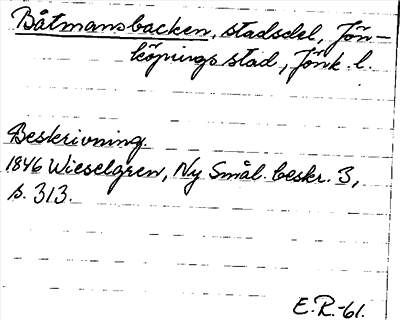 Båtmansbacken, stadsdel, Jön-
köpings stad, Jönk. l.
Beskrivning.
1846 Wieselgren, Ny Smål. beskr. 3,
s. 313.
E.R.-61.